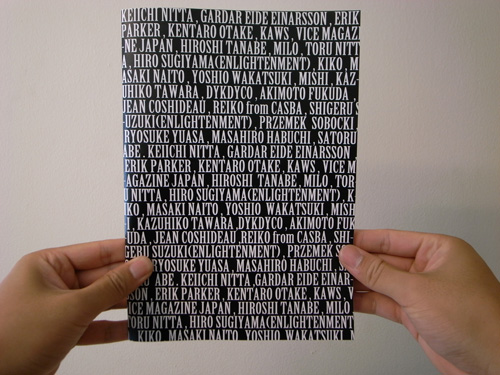 KEIICHI NITTA, GARDAR EIDE EINARSSON, ERIK
PARKER, KENTARO OTAKE, KAWS, VICE MAGAZ
-NE JAPAN, HIROSHI TANABE, MILO, TORU NITT
A, HIRO SUGIYAMA(ENLIGHTENMENT), KIKO, M
ASAKI NAITO, YOSHIO WAKATSUKI, MISHI, KAZ-
UHIKO TAWARA, DYKDYCO, AKIMOTO FUKUDA,
JEAN COSHIDEAU, REIKO from CASBA, SHIGERU
UZUKI(ENLIGHTENMENT), PRZEMEK SOBOCKI
RYOSUKE YUASA, MASAHIRO HABUCHI, SATORU
ABE, KEIICHI NITTA, GARDAR EIDE EINARSSON
ERIK PARKER, KENTARO OTAKE, KAWS, VICE M
AGAZINE JAPAN, HIROSHI TANABE, MILO, TOR
U NITTA, HIRO SUGIYAMA(ENLIGHTENMENT), K
IKO, MASAKI NAITO, YOSHIO WAKATSUKI, MISH
I, KAZUHIKO TAWARA, DYKDYCO, AKIMOTO FUK
UDA, JEAN COSHIDEAU, REIKO from CASBA, SHI-
GERU SUZUKI(ENLIGHTENMENT), PRZEMEK S
RYOSUKE YUASA, MASAHIRO HABUCHI, S
ABE, KEIICHI NITTA, GARDAR EIDE EINAR-
SSON, ERIK PARKER, KENTARO OTAKE, KAWS, V
ICE MAGAZINE JAPAN, HIROSHI TANABE, MILO
TORU NITTA, HIRO SUGIYAMA(ENLIGHTENMENT
KIKO, MASAKI NAITO, YOSHIO WAKATSUKI,